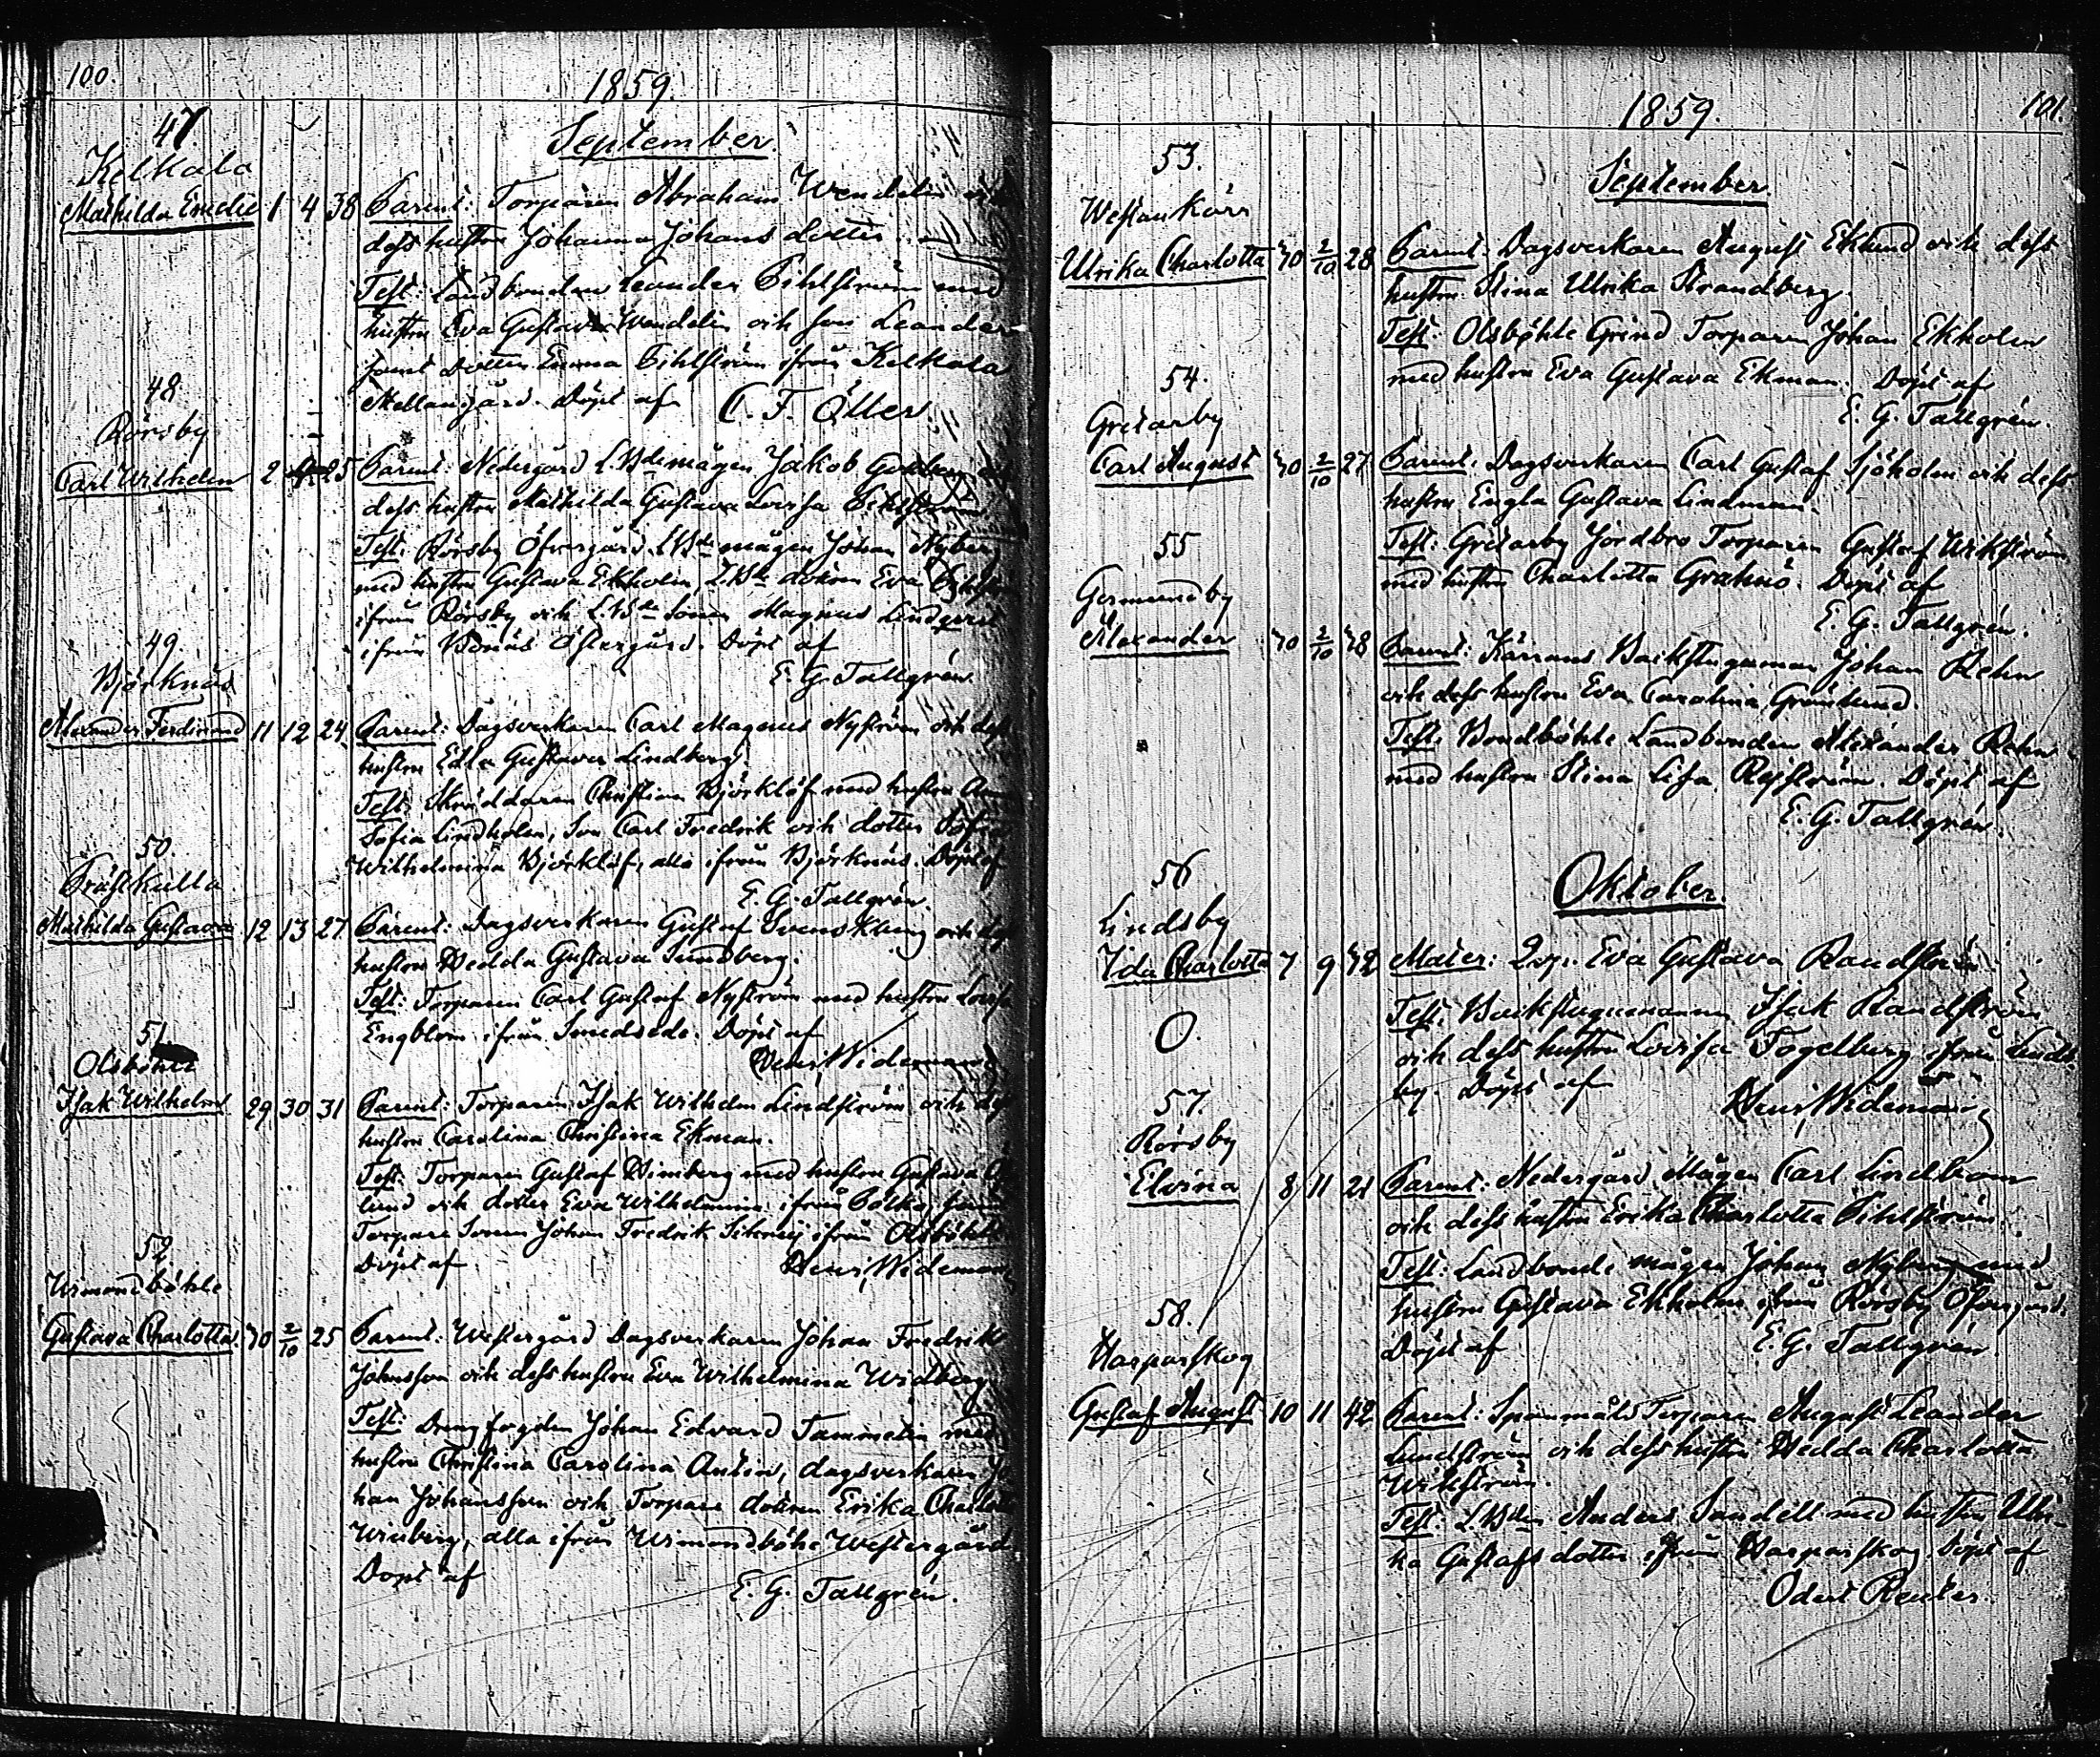 100.
1859.
September.
47
Kelkala
Mathilda Emelie 1 4 38 Parent: Torparen Abraham Wendelin och
dess hustru Johanna Johans dotter.
Test: Landbonden Leander Pihlström med
hustru Eva Gustava Wendelin och son Leander
samt dotter Emma Pihlström ifrån Kelkala
Mellangård. Döpt af C. F. Öller
48.
Rörsby
Carl Wilhelm 2 25 Parent: Nedergård L.Bdemågen Jakob
dess hustru Mathilda Gustava Lovisa Pihlström
Test. Rörsby Öfvergård L.Bde mågen Johan Nyberg
med hustru Gustava Ekholm, L.Bde dottren Eva
ifrån Rörsby och L.Bde sonen Magnus Lindqvist
ifrån Bonäs Östergård. Döpt af
E. G. Tallgrén
49.
Björknäs
Alexander Ferdinand 11 12 24 Parent: Dagsverkaren Carl Magnus Nyström och dess
hustru Edla Gustava Lindberg.
Test. Skräddaren Christian Björklöf med hustru
Sofia Lindholm, Son Carl Fredrik och dotter Sofia
Wilhelmina Björklöf, alla ifrån Björknäs. Döpt af
E. G. Tallgrén.
50.
Präskulla
Mathilda Gustava 12 13 27 Parent: Dagsverkaren Gustaf Svensk och dess
hustru Hedda Gustava Sundberg.
Test: Torparen Carl Gustaf Nyström med hustru Lovisa
Engblom ifrån Smedsede. Döpt af
Henr. Wideman
51
Olsböhle
Isak Wilhelm 29 30 31 Parent: Torparen Isak Wilhelm Lindström och dess
hustru Carolina Christina Ekman.
Test: Torparen Gustaf Wimberg med hustru Gustava
lund och dotter Eva Wilhelmina ifrån Bölka, samt
Torpare Sonen Johan Fredrik ifrån Olsböhle
Döpt af Henr. Wideman
52
Wimondböhle
Gustava Charlotta. 30 2/10 25 Parent: Westergård Dagsverkaren Johan Fredrik
Johnsson och dess hustru Eva Wilhelmina Widberg
Test: Drengfogden Johan Edvard Tammelin med
hustru Christina Carolina Antin, dagsverkaren Jo
han Johansson och Torpare dottren Erika Charlotta
Winberg, alla ifrån Wimondböhe Westergård
Döpt af
E. G. Tallgrén.
1859. 101.
September
53.
Westankärr
Ulrika Charlotta 30 2/10 28 Parent: Dagsverkaren August Eklund och dess
hustru Stina Ulrika Strandberg.
Test: Olsböhle Grind Torparen Johan Ekholm
med hustru Eva Gustava Ekman. Döpt af
E. G. Tallgrén.
54.
Gretarby
Carl August 30 2/10 27 Parent: Dagsverkaren Carl Gustaf Sjöholm och dess
hustru Engla Gustava Lindman.
Test: Gretarby Jordbro Torparen Gustaf Wikström
med hustru Charlotta Grahnö. Döpt af
E. G. Tallgrén.
55
Germundby
Alexander 30 2/10 38 Parent: Kärrans Backstugaman Johan Rehn
och dess hustru Eva Carolina Grönlund.
Test. Bondböhle Landbonden Alexander Rehn
med hustru Stina Lisa Sjöström. Döpt af
E. G. Tallgrén.
Oktober.
56
Lindsby
Ida Charlotta 7 9 32 Mater: Qvp. Eva Gustava Randström
Test. Backstugumannen Isak Randström
och dess hustru Lovisa Fogelberg ifrån Linds
by. Döpt af
Henr. Wideman
O.
57.
Rörsby
Elvina 8 11 21 Parent: Nedergård Mågen Carl Lindblom
och dess hustru Erika Charlotta Pihlström.
Test: Landbonde mågen Johan Nyberg med
hustru Gustava Ekholm ifrån Rörsby Öfvergård.
Döpt af E. G. Tallgrén.
58.
Harparskog
Gustaf August 10 11 42 Parent: Spanmåls Torparen August Leander
Lundström och dess hustru Hedda Charlotta
Wikström.
Test: L.Bden Anders Sandell med hustru Ulri-
ka Gustafs dotter ifrån Harparskog. Döpt af
Odert Reuter.